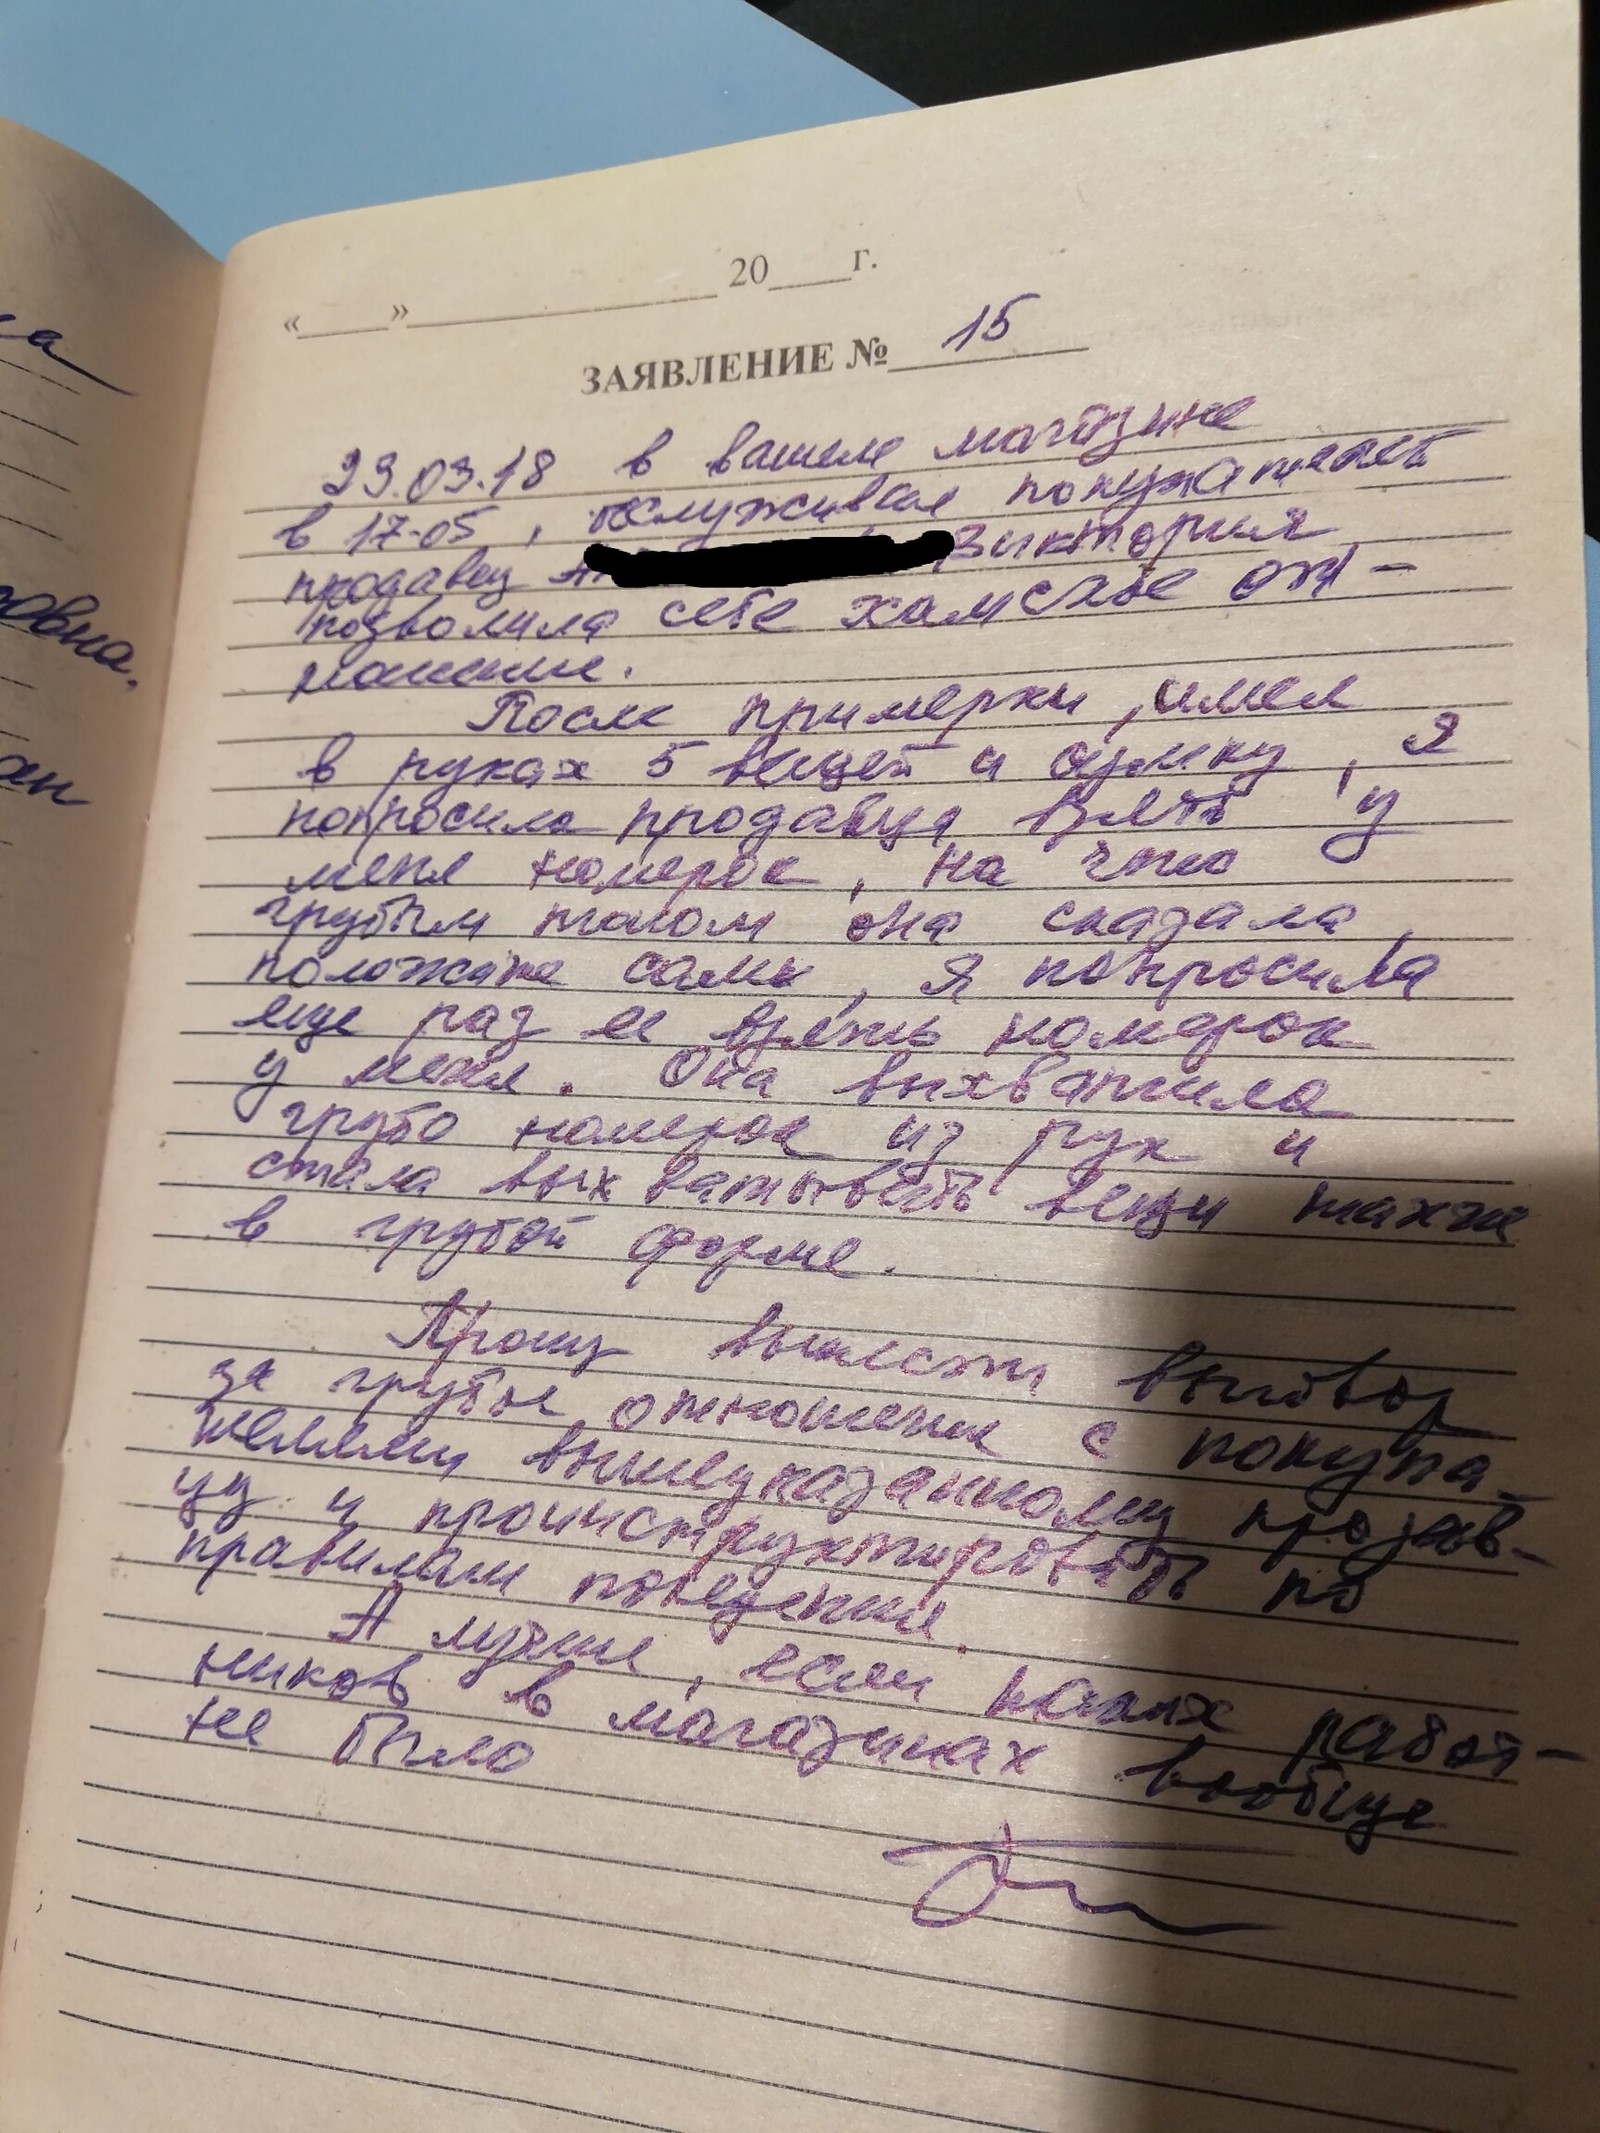 «____»______________ 20____г.
ЗАЯВЛЕНИЕ № 15
23.03.18 в вашем магазине
в 17-05, обслуживая покупателей
продавец Виктория
позволила себе хамское от-
ношение.
После примерки, имея
в руках 5 вещей и сумку, я
попросила продавца взять у
меня номерок, на что
грубым тоном она сказала,
положите сами, я попросила
еще раз ее взять номерок
у меня. Она выхватила
грубо номерок из рук и
стала выхватывать вещи также
в грубой форме.
Прошу вынести выговор
за грубое отношение с покупа-
телями вышеуказанному продав-
цу и проинструктировать по
правилам поведения.
А лучше, если таких работ-
ников в магазинах вообще
не было
ка
ровна.
ан